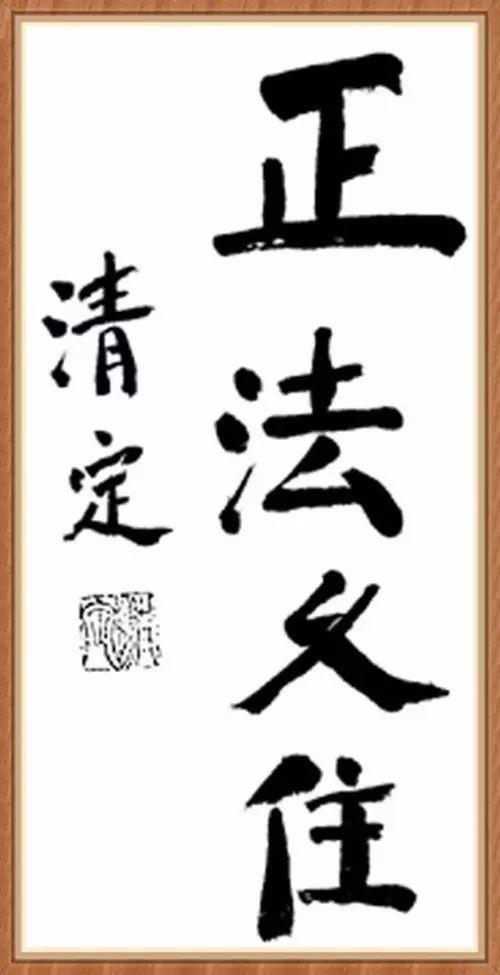 正法久住
清定